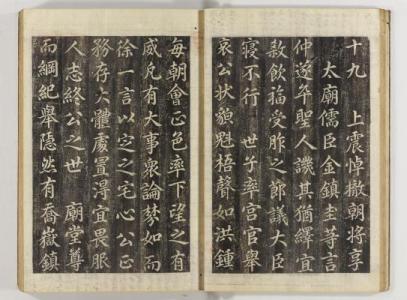 十九　上震悼撤朝將享
太廟儒臣金鎮圭等言
仲遂卒聖人譏其猶繹宜
赦飲福受胙之節議大臣
寢不行　世子率宮官舉
哀公狀貌魁梧聲如洪鍾
每朝會正色率下望之有
威凡有大事衆論棼如而
徐一言以定之宅心公正
務存大體處置得宜畏服
人志終公之世　廟堂尊
而綱紀舉隱然有喬嶽鎮